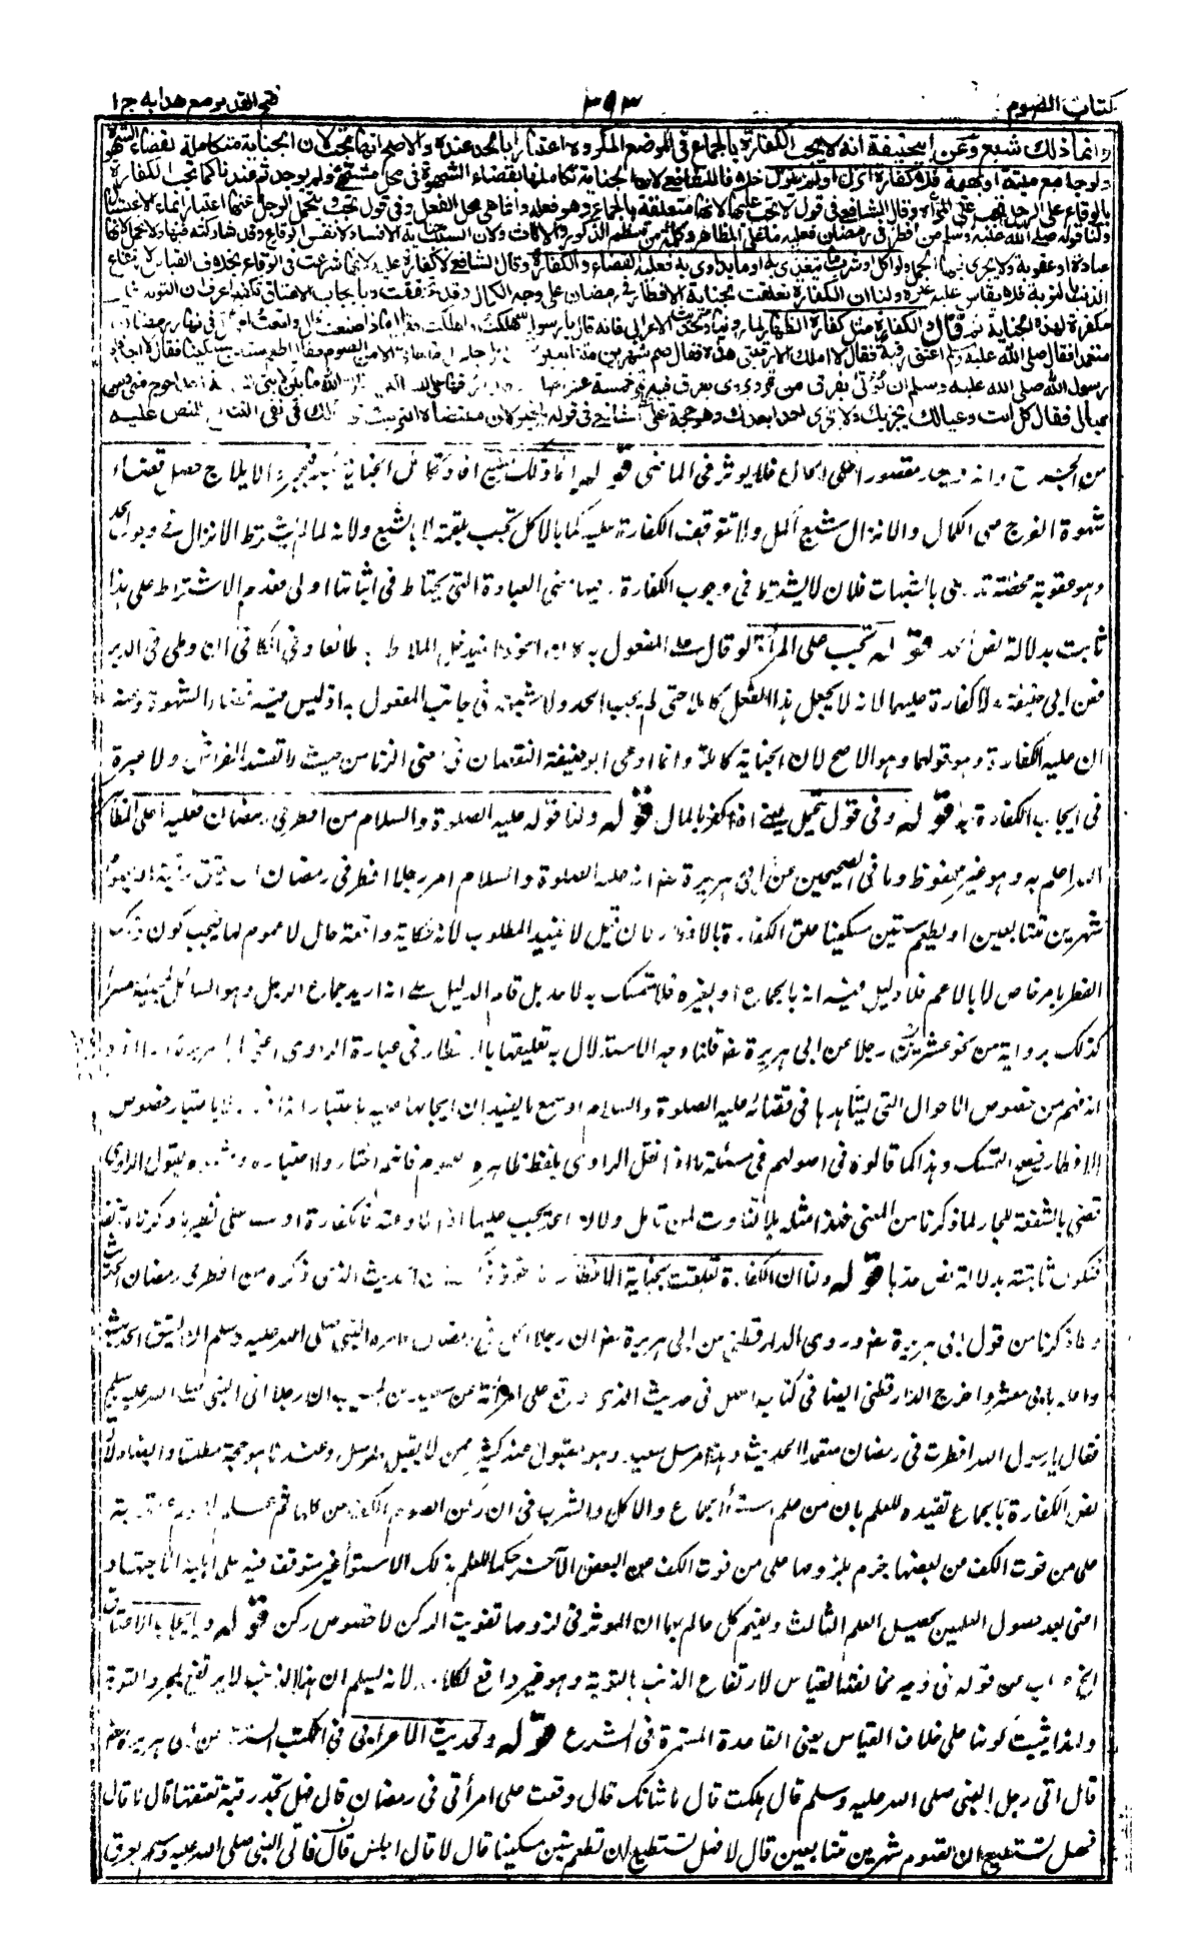 كتاب الصوم
٣٩٣
فتح القدير مع هدايه ج١
وانما ذلك شبع وعن ابيحنيفة انه لا يجب الكفارة بالجماع فى الموضع المكروه اعتبارا بالحد عنده والاصح انها تجب لان الجناية متكاملة لقضاء الشهوة
ولو جامع ميتة او بهيمة فلا كفارة انزل او لم ينزل خلافا للشافعى لان الجناية تكاملها بقضاء الشهوة فى محل مشتهى ولم يوجد ثم عندنا كما تجب الكفارة
بالوقاع على الرجل تجب على المرأة وقال الشافعى فى قول لا تجب عليها لانها متعلقة بالجماع وهو فعله وانما هى محل الفعل وفى قول تجب ويتحمل الرجل عنها اعتبارا بماء الاغتسال
ولنا قوله صلى الله عليه وسلم من افطر فى رمضان فعليه ما على المظاهر وكلمة من تنتظم الذكور والاناث ولان السبب جناية الافساد لا نفس الوقاع وقد شاركته فيها ولا يتحمل لانها
عبادة او عقوبة ولا يجرى فيها التحمل ولو اكل او شرب ما يتغذى به او ما يداوى به فعليه القضاء والكفارة وقال الشافعى لا كفارة عليه لانها شرعت فى الوقاع بخلاف القياس لارتفاع
الذنب بالتوبة فلا يقاس عليه غيره ولنا ان الكفارة تعلقت بجناية الافطار فى رمضان على وجه الكمال وقد تحققت وبايجاب الاعتاق تكفيرا عرف ان التوبة غير
مكفرة لهذه الجناية ثم قال والكفارة مثل كفارة الظهار لما روينا ولحديث الاعرابى فانه قال يا رسول الله هلكت واهلكت فقال ماذا صنعت قال واقعت امرأتى فى نهار رمضان
متعمدا فقال صلى الله عليه وسلم اعتق رقبة فقال لا املك الا رقبتى هذه فقال صم شهرين متتابعين
رسول الله صلى الله عليه وسلم ان يؤتى بفرق من تمر ويروى بعرق فيه خمسة عشر
عيالى فقال كل انت وعيالك يجزيك ولا يجزى احدا بعدك وهو حجة على الشافعى فى قوله يخير لان مقتضاه الترتيب وعلى مالك فى نفى التتابع للنص عليه
مقصورا على الحال فلا يوثر فى الماضى قوله وانما ذلك شبع افاد تكامل الجناية قبله بمجرد الايلاج حصل قضاء
شهوة الفرج على الكمال والانزال شبع اكمل ولا تتوقف الكفارة عليه كما بالاكل تجب بلقمة لا بالشبع ولانه لما لم يشترط الانزال فى وجوب الحد
وهو عقوبة محضة تندرئ بالشبهات فلان لا يشترط فى وجوب الكفارة وفيها معنى العبادة التى يحتاط فى اثباتها اولى فعدم الاشتراط على هذا
ثابت بدلالة نص الحد قوله تجب على المرأة لو قال على المفعول به طائعا وفى الكافى ان وطى فى الدبر
فعن ابى حنيفة لا كفارة عليهما لانه لا يجعل هذا الفعل كاملا حتى لم يجب الحد ولا شبهة فى جانب المفعول به اذ ليس فيه قضاء الشهوة وعنه
ان عليه الكفارة وهو قولهما وهو الاصح لان الجناية كاملة وانما ادعى ابو حنيفة النقصان فى معنى الزنا من حيث افساد الفراش ولا عبرة
فى ايجاب الكفارة به قوله وفى قول يتحمل يعنى اذا كفر بالمال قوله ولنا قوله عليه الصلوة والسلام من افطر فى رمضان فعليه ما على المظاهر
الله اعلم به وهو غير محفوظ وما فى الصحيحين عن ابى هريرة انه عليه الصلوة والسلام امر رجلا افطر فى رمضان ان يعتق رقبة او يصوم
شهرين متتابعين او يطعم ستين مسكينا علق الكفارة بالافطار فان قيل لا يفيد المطلوب لانه حكاية واقعة حال لا عموم لها فيجب كون ذلك
الفطر بامر خاص لا بالاعم فلا دليل فيه انه بالجماع او بغيره فلا تمسك به لاحد بل قام الدليل على انه اريد جماع الرجل وهو السائل لمجيئه مفسرا
كذلك برواية من نحو عشرين رجلا عن ابى هريرة قلنا وجه الاستدلال به تعليقها بالافطار فى عبارة الراوى اعنى ابا هريرة اذ افاد
انه فهم من خصوص الاحوال التى يشاهدها فى قضائه عليه الصلوة والسلام او سمع ما يفيد ان ايجابها عليه باعتبار انه افطار لا باعتبار خصوص
الافطار فيصح التمسك وهذا كما قالوه فى اصولهم فى مسئلة ما اذا نقل الراوى بلفظ ظاهره العموم فانهم اختاروا اعتباره ومثلوه بقول الراوى
قضى بالشفعة للجار لما ذكرنا من المعنى فهذا مثله بلا تفاوت لمن تامل ولانه الحد يجب عليها اذا طاوعته فالكفارة اولى على نظير ما ذكرناه آنفا
فتكون ثابتة بدلالة نص حدها قوله ولنا ان الكفارة تعلقت بجناية الافطار الحديث الذى ذكره من افطر فى رمضان الحديث
وما ذكرنا من قول ابى هريرة وروى الدارقطنى من ابى هريرة ان رجلا اكل فى رمضان فامره النبى صلى الله عليه وسلم ان يعتق الحديث
واعله بابى معشر واخرج الدارقطنى ايضا فى كتاب العلل فى حديث الذى وقع على امرأته عن سعيد بن المسيب ان رجلا اتى النبى صلى الله عليه وسلم
فقال يا رسول الله افطرت فى رمضان متعمدا الحديث وهذا مرسل سعيد وهو مقبول عند كثير ممن لا يقبل المرسل وعندنا هو حجة مطلقا وايضا دلالة
نص الكفارة بالجماع تفيده للعلم بان من علم استواء الجماع والاكل والشرب فى ان ركن الصوم الكف عن كلها ثم علم لزوم عقوبة
على من فوت الكف عن بعضها جزم بلزومها على من فوت الكف عن البعض الآخر حكما للعلم بذلك الاستواء غير متوقف فيه على اهلية الاجتهاد
اعنى بعد حصول العلمين يحصل العلم الثالث ويفهم كل عالم بهما ان الموثر فى لزومها تفويت الركن لا خصوص ركن قوله وبايجاب الاعتاق
الخ جواب عن قوله فى وجه مخالفة القياس لارتفاع الذنب بالتوبة وهو غير دافع لكلامه لانه يسلم ان هذا الذنب لا يرتفع بمجرد التوبة
ولهذا يثبت كونها على خلاف القياس يعنى القاعدة المستمرة فى الشرع قوله ولحديث الاعرابى فى الكتب الستة عن ابى هريرة
قال اتى رجل النبى صلى الله عليه وسلم قال هلكت قال ما شانك قال وقعت على امرأتى فى رمضان قال فهل تجد رقبة تعتقها قال لا قال
فهل تستطيع ان تصوم شهرين متتابعين قال لا فهل تستطيع ان تطعم ستين مسكينا قال لا قال اجلس قال فاتى النبى صلى الله عليه وسلم بعرق